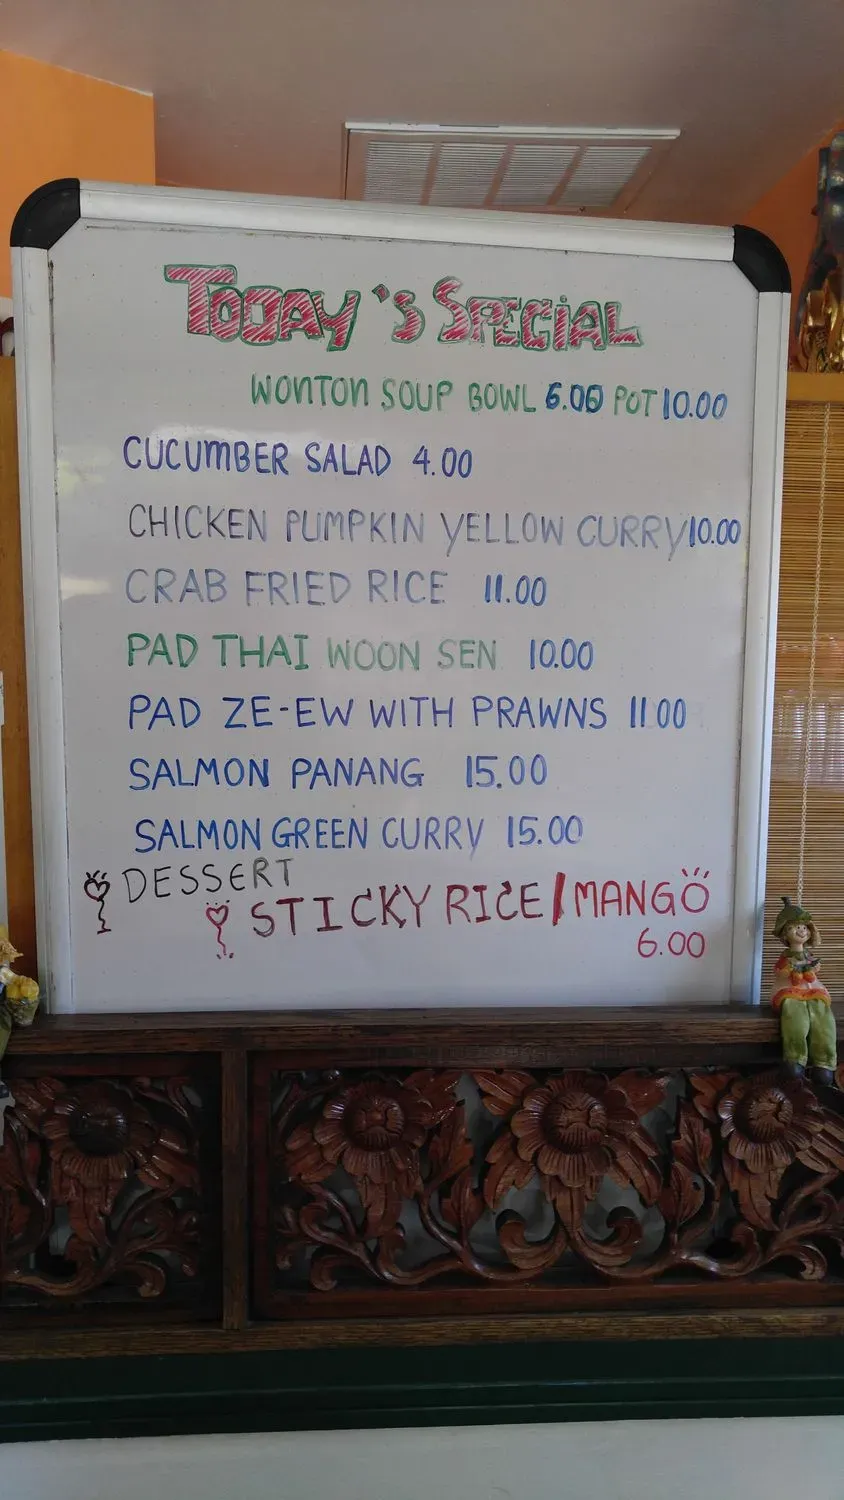 TODAY'S SPECIAL
WONTON SOUP BOWL 6.00 POT 10.00
CUCUMBER SALAD 4.00
CHICKEN PUMPKIN YELLOW CURRY 10.00
CRAB FRIED RICE 11.00
PAD THAI WOON SEN 10.00
PAD ZE-EW WITH PRAWNS 11.00
SALMON PANANG 15.00
SALMON GREEN CURRY 15.00
DESSERT
STICKY RICE/MANGO
6.00